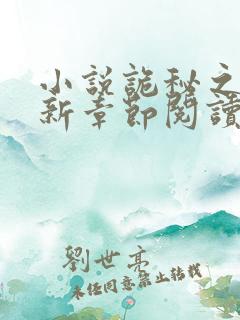 小說詭秘之
新章節閱讀
劉世亮
未經同意禁止轉載